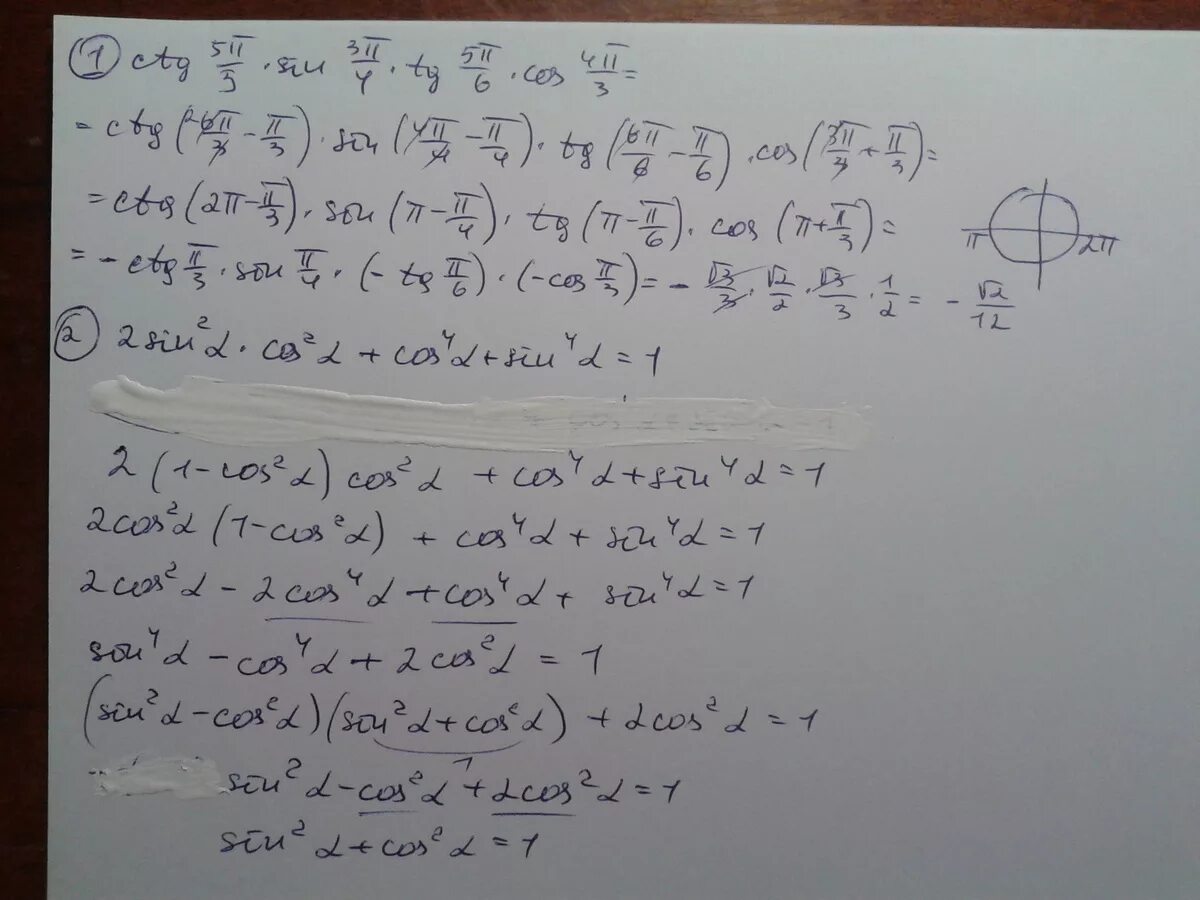 ① ctg 5π/3 · sin 3π/4 · tg 5π/6 · cos 4π/3 =
= ctg (6π/3 - π/3) · sin (4π/4 - π/4) · tg (6π/6 - π/6) · cos (3π/3 + π/3) =
= ctg (2π - π/3) · sin (π - π/4) · tg (π - π/6) · cos (π + π/3) =
π 2π
= - ctg π/3 · sin π/4 · (- tg π/6) · (- cos π/3) = - √3/3 · √2/2 · √3/3 · 1/2 = - √2/12
② 2 sin²α · cos²α + cos⁴α + sin⁴α = 1
2 (1 - cos²α) cos²α + cos⁴α + sin⁴α = 1
2cos²α (1 - cos²α) + cos⁴α + sin⁴α = 1
2cos²α - 2cos⁴α + cos⁴α + sin⁴α = 1
sin⁴α - cos⁴α + 2cos²α = 1
(sin²α - cos²α)(sin²α + cos²α) + 2cos²α = 1
1
sin²α - cos²α + 2cos²α = 1
sin²α + cos²α = 1